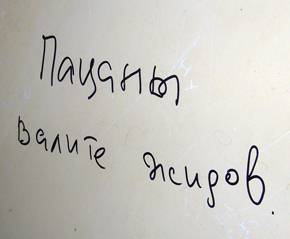 Пацаны
валите жидов.